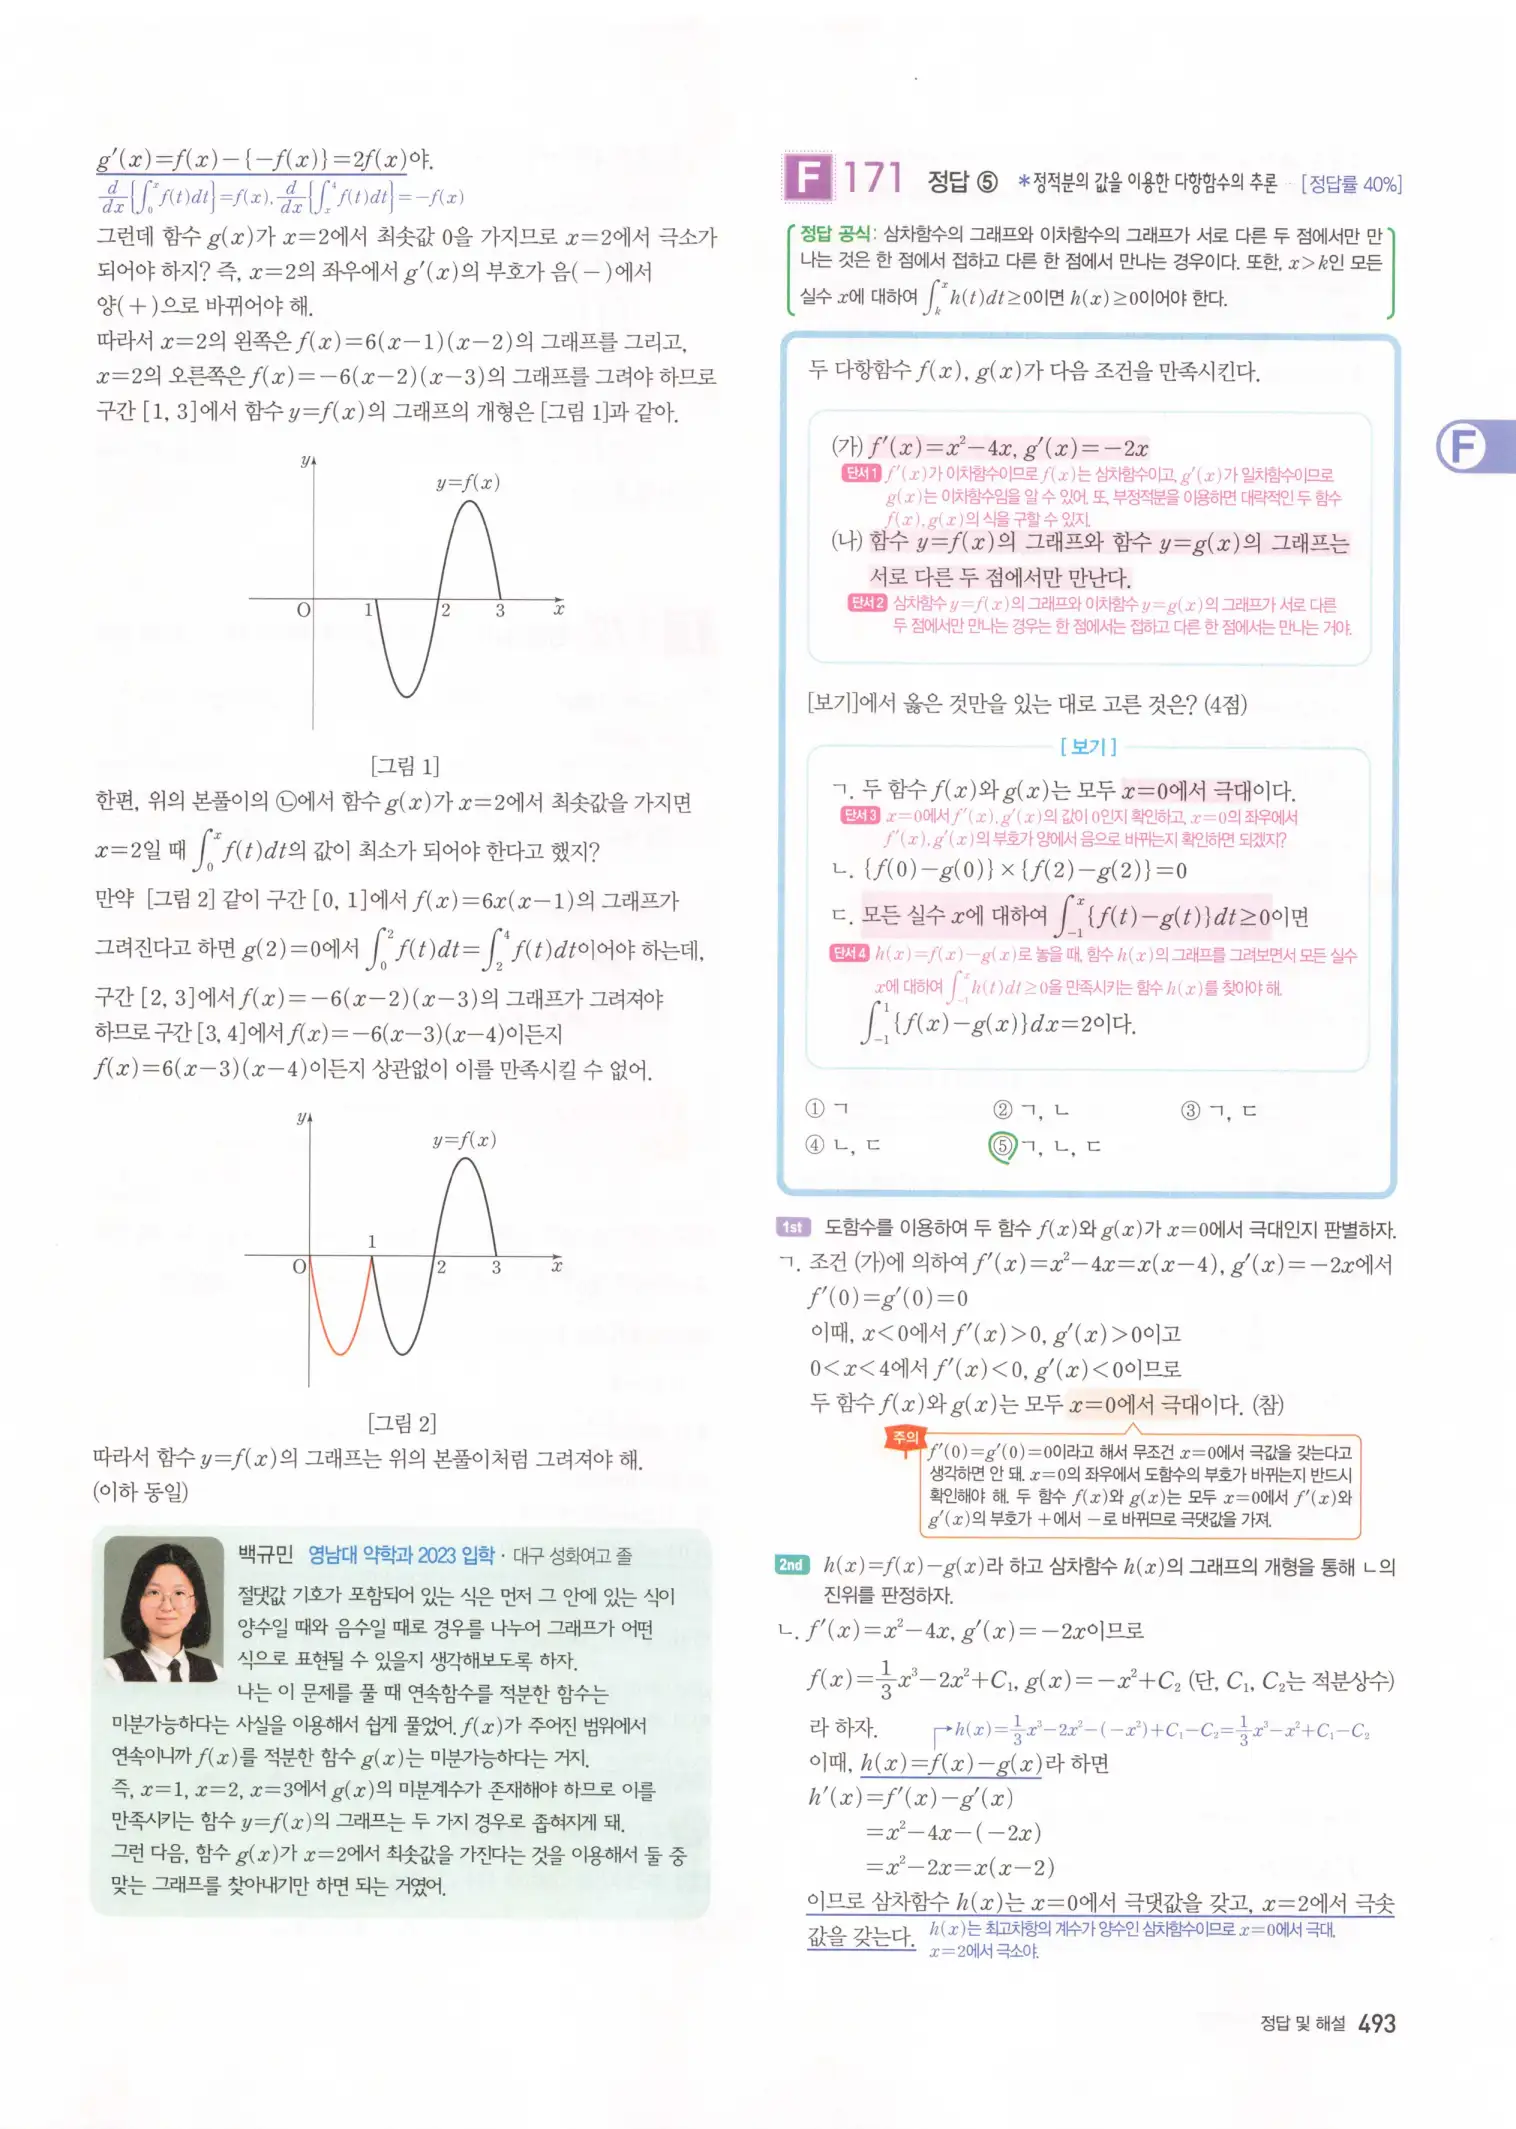 g′(x)=f(x)-{-f(x)}=2f(x)야.
d/dx{∫₀ˣ f(t)dt}=f(x), d/dx{∫ₓ⁴ f(t)dt}=-f(x)
그런데 함수 g(x)가 x=2에서 최솟값 0을 가지므로 x=2에서 극소가
되어야 하지? 즉, x=2의 좌우에서 g′(x)의 부호가 음(-)에서
양(+)으로 바뀌어야 해.
따라서 x=2의 왼쪽은 f(x)=6(x-1)(x-2)의 그래프를 그리고,
x=2의 오른쪽은 f(x)=-6(x-2)(x-3)의 그래프를 그려야 하므로
구간 [1, 3]에서 함수 y=f(x)의 그래프의 개형은 [그림 1]과 같아.
y
y=f(x)
O 1 2 3 x
[그림 1]
한편, 위의 본풀이의 ㉡에서 함수 g(x)가 x=2에서 최솟값을 가지면
x=2일 때 ∫₀ˣ f(t)dt의 값이 최소가 되어야 한다고 했지?
만약 [그림 2] 같이 구간 [0, 1]에서 f(x)=6x(x-1)의 그래프가
그려진다고 하면 g(2)=0에서 ∫₀² f(t)dt=∫₂⁴ f(t)dt이어야 하는데,
구간 [2, 3]에서 f(x)=-6(x-2)(x-3)의 그래프가 그려져야
하므로 구간 [3, 4]에서 f(x)=-6(x-3)(x-4)이든지
f(x)=6(x-3)(x-4)이든지 상관없이 이를 만족시킬 수 없어.
y
y=f(x)
1
O 2 3 x
[그림 2]
따라서 함수 y=f(x)의 그래프는 위의 본풀이처럼 그려져야 해.
(이하 동일)
백규민 영남대 약학과 2023 입학 · 대구 성화여고 졸
절댓값 기호가 포함되어 있는 식은 먼저 그 안에 있는 식이
양수일 때와 음수일 때로 경우를 나누어 그래프가 어떤
식으로 표현될 수 있을지 생각해보도록 하자.
나는 이 문제를 풀 때 연속함수를 적분한 함수는
미분가능하다는 사실을 이용해서 쉽게 풀었어. f(x)가 주어진 범위에서
연속이니까 f(x)를 적분한 함수 g(x)는 미분가능하다는 거지.
즉, x=1, x=2, x=3에서 g(x)의 미분계수가 존재해야 하므로 이를
만족시키는 함수 y=f(x)의 그래프는 두 가지 경우로 좁혀지게 돼.
그런 다음, 함수 g(x)가 x=2에서 최솟값을 가진다는 것을 이용해서 둘 중
맞는 그래프를 찾아내기만 하면 되는 거였어.
F 171 정답 ⑤ *정적분의 값을 이용한 다항함수의 추론 [정답률 40%]
정답 공식: 삼차함수의 그래프와 이차함수의 그래프가 서로 다른 두 점에서만 만
나는 것은 한 점에서 접하고 다른 한 점에서 만나는 경우이다. 또한, x>k인 모든
실수 x에 대하여 ∫ₖˣ h(t)dt≥0이면 h(x)≥0이어야 한다.
두 다항함수 f(x), g(x)가 다음 조건을 만족시킨다.
(가) f′(x)=x²-4x, g′(x)=-2x
단서1 f′(x)가 이차함수이므로 f(x)는 삼차함수이고, g′(x)가 일차함수이므로
g(x)는 이차함수임을 알 수 있어. 또, 부정적분을 이용하면 대략적인 두 함수
f(x), g(x)의 식을 구할 수 있지.
(나) 함수 y=f(x)의 그래프와 함수 y=g(x)의 그래프는
서로 다른 두 점에서만 만난다.
단서2 삼차함수 y=f(x)의 그래프와 이차함수 y=g(x)의 그래프가 서로 다른
두 점에서만 만나는 경우는 한 점에서는 접하고 다른 한 점에서는 만나는 거야.
[보기]에서 옳은 것만을 있는 대로 고른 것은? (4점)
[보기]
ㄱ. 두 함수 f(x)와 g(x)는 모두 x=0에서 극대이다.
단서3 x=0에서 f′(x), g′(x)의 값이 0인지 확인하고, x=0의 좌우에서
f′(x), g′(x)의 부호가 양에서 음으로 바뀌는지 확인하면 되겠지?
ㄴ. {f(0)-g(0)}×{f(2)-g(2)}=0
ㄷ. 모든 실수 x에 대하여 ∫₋₁ˣ {f(t)-g(t)}dt≥0이면
단서4 h(x)=f(x)-g(x)로 놓을 때, 함수 h(x)의 그래프를 그려보면서 모든 실수
x에 대하여 ∫₋₁ˣ h(t)dt≥0을 만족시키는 함수 h(x)를 찾아야 해.
∫₋₁¹ {f(x)-g(x)}dx=2이다.
① ㄱ ② ㄱ, ㄴ ③ ㄱ, ㄷ
④ ㄴ, ㄷ ⑤ ㄱ, ㄴ, ㄷ
1st 도함수를 이용하여 두 함수 f(x)와 g(x)가 x=0에서 극대인지 판별하자.
ㄱ. 조건 (가)에 의하여 f′(x)=x²-4x=x(x-4), g′(x)=-2x에서
f′(0)=g′(0)=0
이때, x<0에서 f′(x)>0, g′(x)>0이고
0<x<4에서 f′(x)<0, g′(x)<0이므로
두 함수 f(x)와 g(x)는 모두 x=0에서 극대이다. (참)
주의 f′(0)=g′(0)=0이라고 해서 무조건 x=0에서 극값을 갖는다고
생각하면 안 돼. x=0의 좌우에서 도함수의 부호가 바뀌는지 반드시
확인해야 해. 두 함수 f(x)와 g(x)는 모두 x=0에서 f′(x)와
g′(x)의 부호가 +에서 -로 바뀌므로 극댓값을 가져.
2nd h(x)=f(x)-g(x)라 하고 삼차함수 h(x)의 그래프의 개형을 통해 ㄴ의
진위를 판정하자.
ㄴ. f′(x)=x²-4x, g′(x)=-2x이므로
f(x)=1/3x³-2x²+C₁, g(x)=-x²+C₂ (단, C₁, C₂는 적분상수)
라 하자. h(x)=1/3x³-2x²-(-x²)+C₁-C₂=1/3x³-x²+C₁-C₂
이때, h(x)=f(x)-g(x)라 하면
h′(x)=f′(x)-g′(x)
=x²-4x-(-2x)
=x²-2x=x(x-2)
이므로 삼차함수 h(x)는 x=0에서 극댓값을 갖고, x=2에서 극솟
값을 갖는다. h(x)는 최고차항의 계수가 양수인 삼차함수이므로 x=0에서 극대,
x=2에서 극소야.
F
정답 및 해설 493